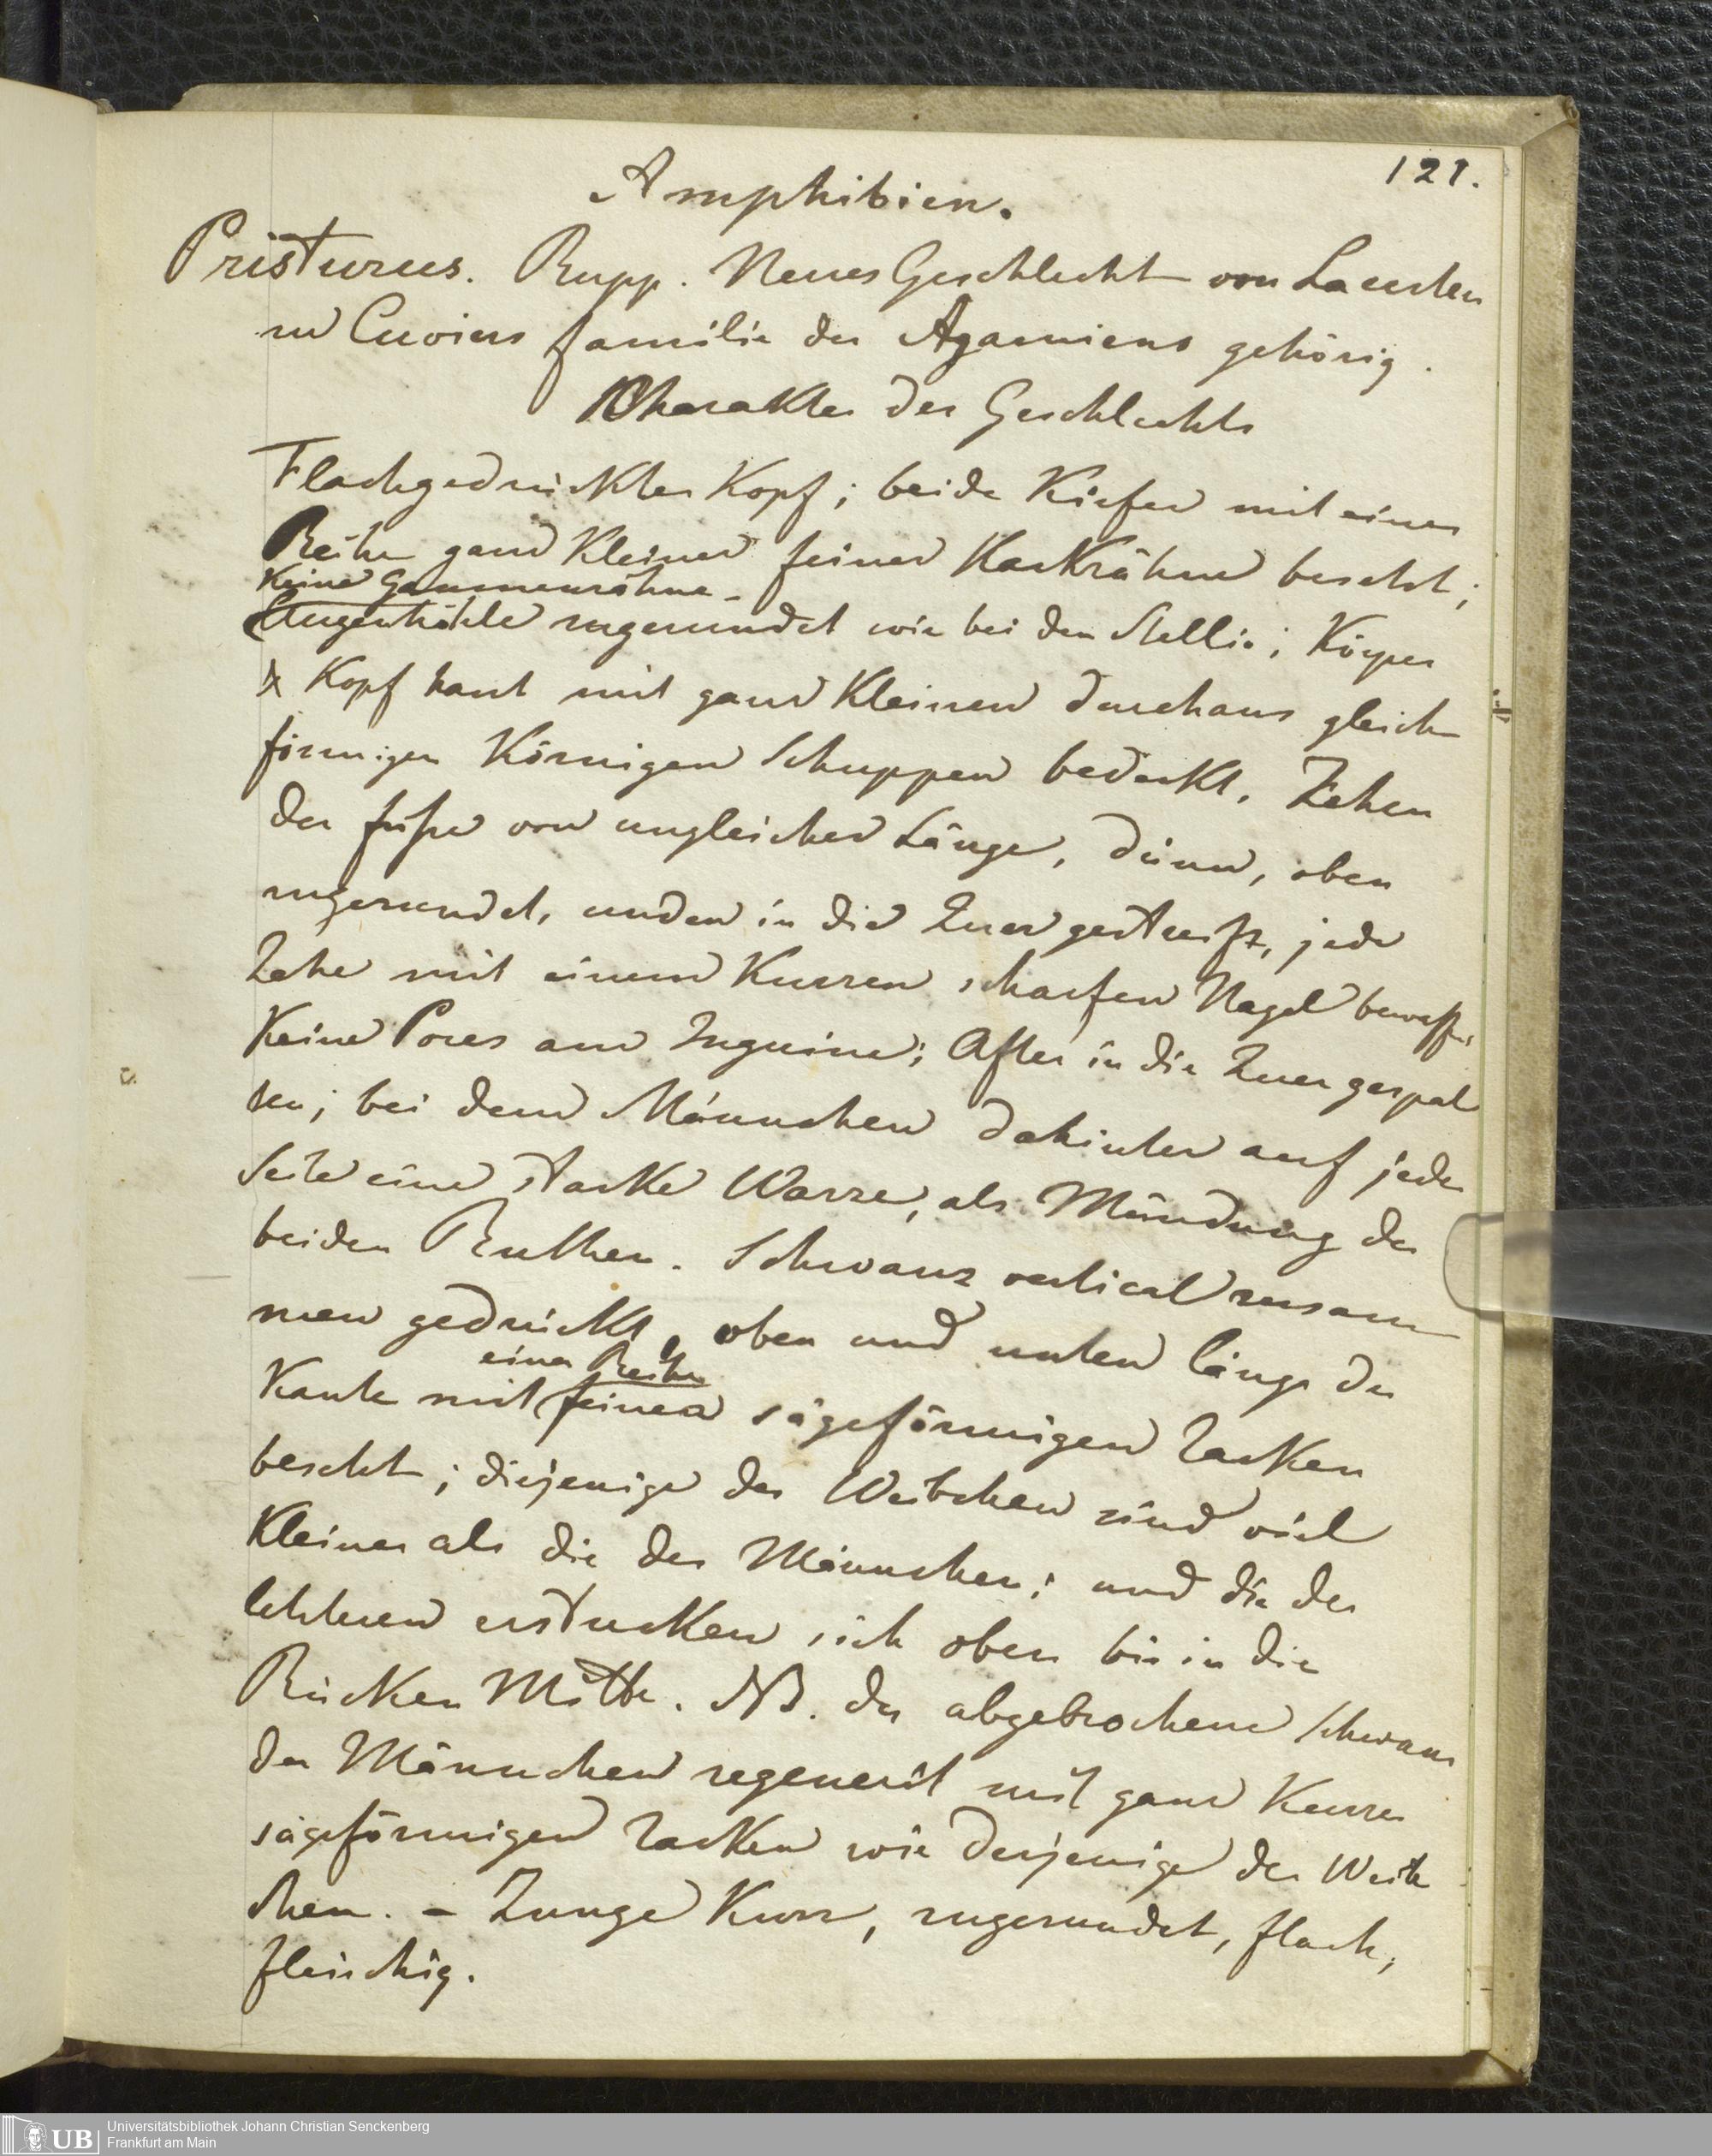 121.
Amphibien.
Pristurus. Rupp. Neues Geschlecht von Lacerten
zu Cuviers familie der Agamiens gehörig.
Charakter des Geschlechts
Flachgedrückter Kopf; beide Kiefer mit einer
Reihe ganz kleiner feiner Hackzähne besetzt;
keine Gaumenzähne -
Augenhöhle zugerundet wie bei den Stellio; Körper
& Kopf haut mit ganz kleinen durchaus gleich
förmigen körnigen Schuppen bedeckt. Zehen
der füße von ungleicher Länge, dünn, oben
zugerundet, unden in die Quer gestreift, jede
Zehe mit einem kurzen scharfen Nagel bewaffn.
Keine Pores am Inguine; After in die Quer gespal
ten; bei dem Männchen dahinter auf jeder
Seite eine starke Warze, als Mündung der
beiden Ruthen. Schwanz vertical zusam
men gedrückt, oben und unten längs der
einer Reihe
Kante mit feinen sägeförmigen Zacken
besetzt; diejenige des Weibchen sind viel
kleiner als die des Männchen; und die des
letzteren erstrecken sich oben bis in die
Rücken Mitte. NB. der abgebrochene Schwanz
der Männchen regenerirt mit ganz kurzen
sägeförmigen Zacken wie derjenige der Weib
chen. - Zunge kurz, zugerundet, flach,
fleischig.
UB
Universitätsbibliothek Johann Christian Senckenberg
Frankfurt am Main